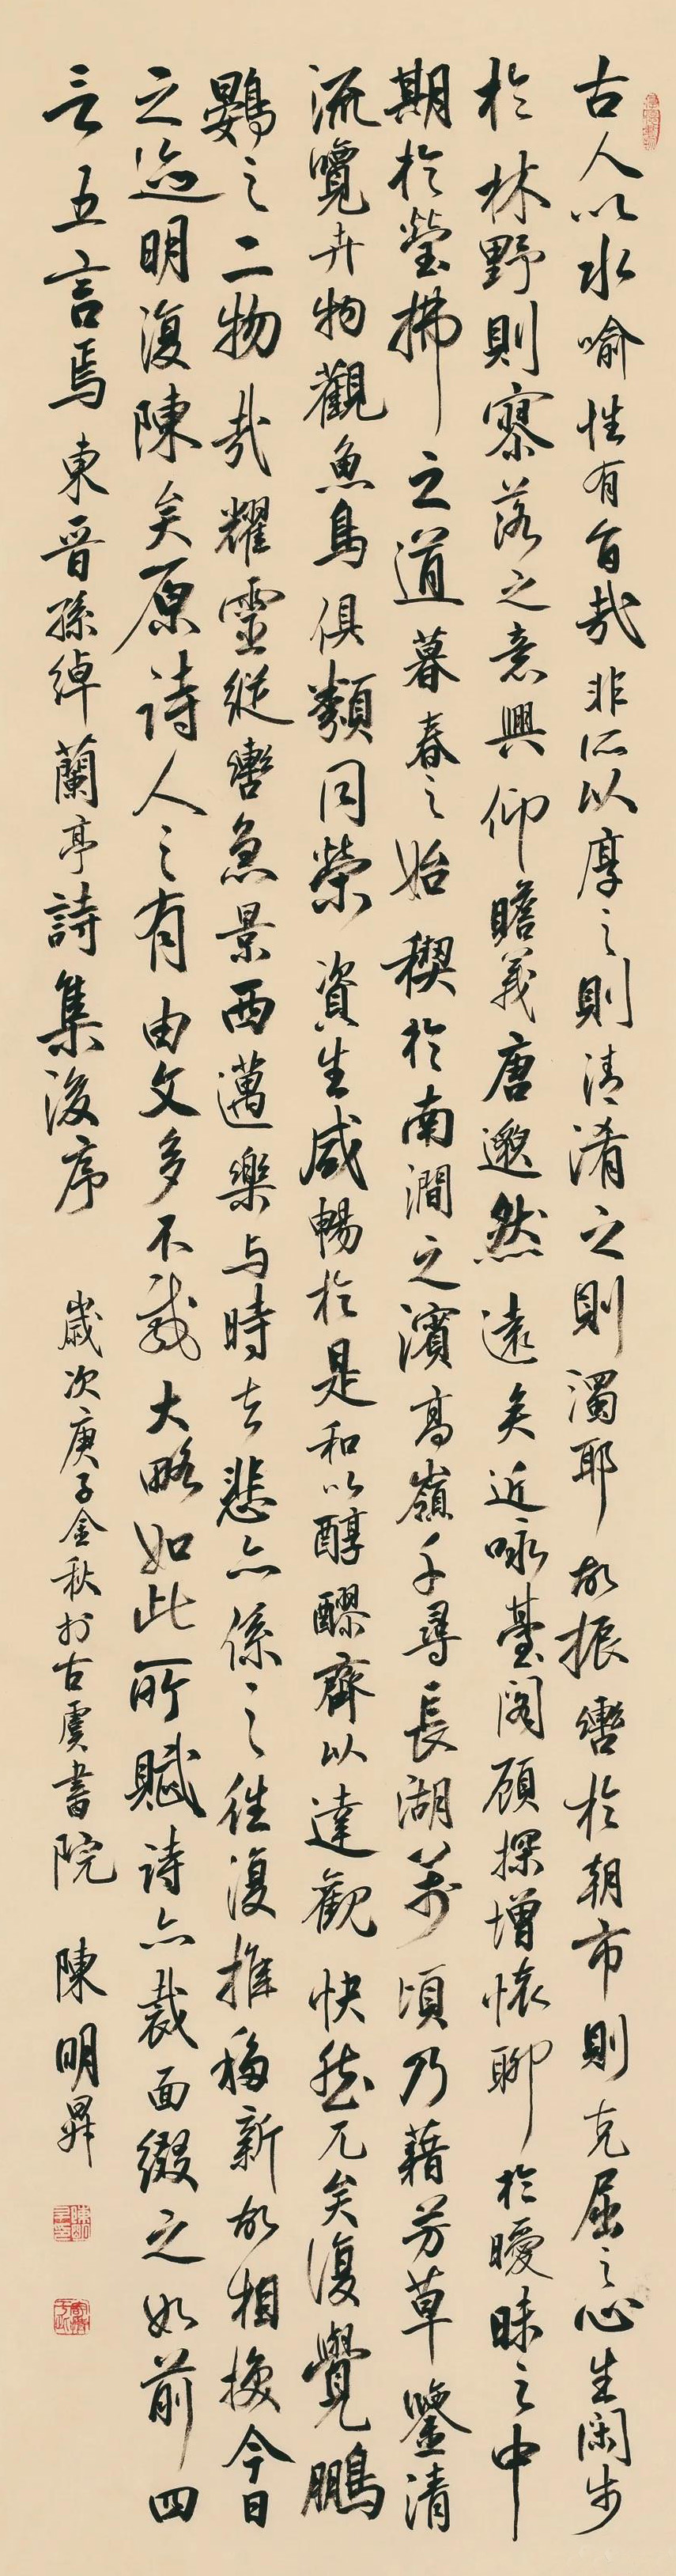 古人以水喻性有旨哉非所以淳之則清淆之則濁耶故振轡於朝市則充屈之心生閑步
於林野則寮落之意興仰瞻義唐邈然遠矣近咏臺閣顧探增懷聊於曖昧之中
期於瑩拂之道暮春之始禊於南澗之濱高嶺千尋長湖萬頃乃藉芳草鑒清
流覽卉物觀魚鳥俱類同榮資生咸暢於是和以醇醪齊以達觀快然兀矣復覺鵬
鷃之二物哉耀靈縱轡急景西邁樂与時去悲亦係之往復推移新故相換今日
之迹明復陳矣原詩人之有由文多不載大略如此所賦詩亦裁而綴之如前四
言五言焉東晉孫綽蘭亭詩集後序 歲次庚子金秋於古虞書院 陳明昇